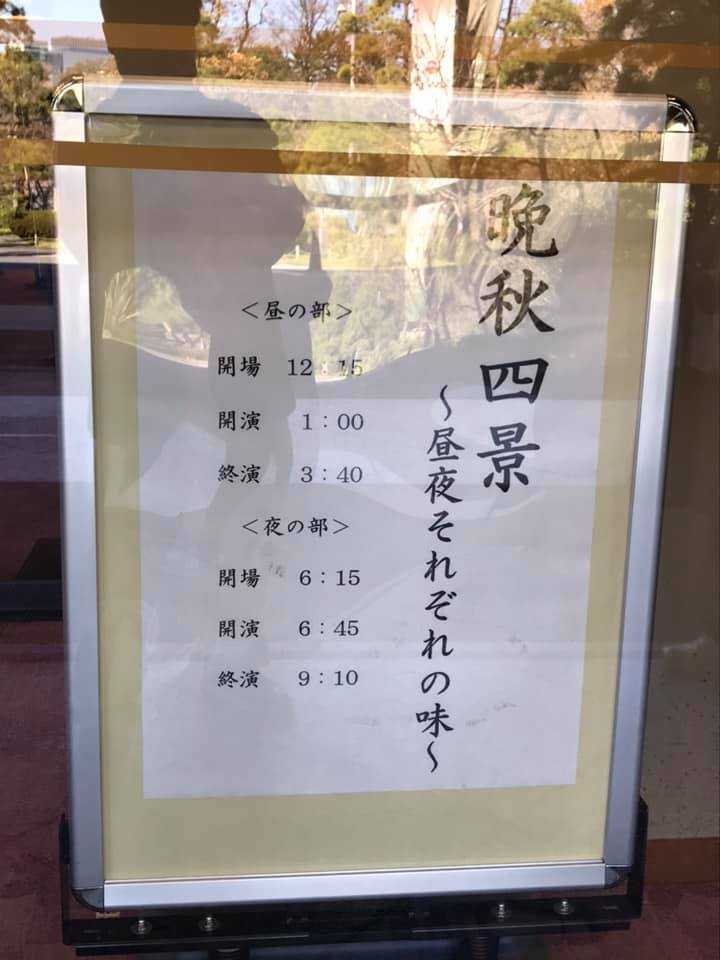 晩秋四景
～昼夜それぞれの味～
＜昼の部＞
開場 12：15
開演 1：00
終演 3：40
＜夜の部＞
開場 6：15
開演 6：45
終演 9：10